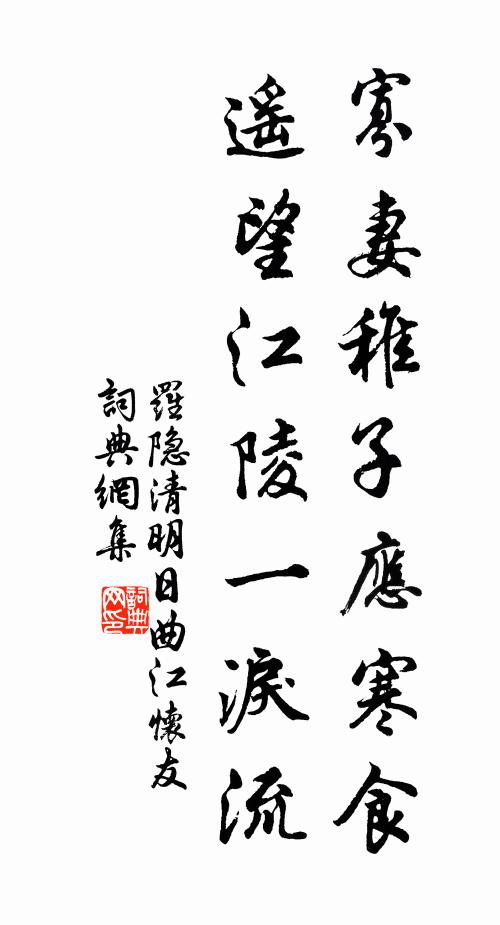 寡妻稚子應寒食
遥望江陵一淚流
羅隐清明日曲江懷友
詞典網集
詞典网印